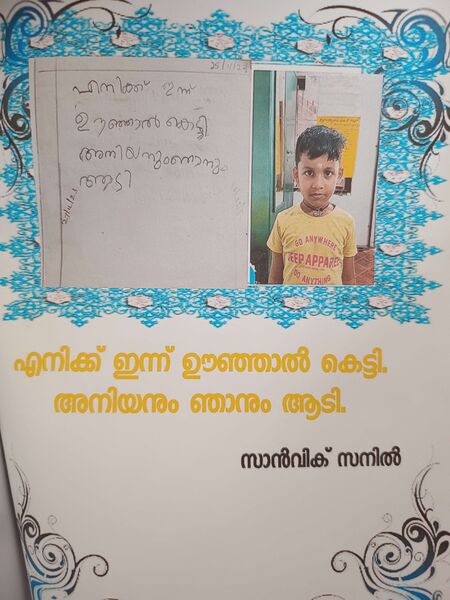 എനിക്ക് ഇന്ന്
ഊഞ്ഞാൽ കെട്ടി
അനിയനും ഞാനും
ആടി
GO ANYWHERE
DO ANYTHING
എനിക്ക് ഇന്ന് ഊഞ്ഞാൽ കെട്ടി.
അനിയനും ഞാനും ആടി.
സാൻവിക് സനിൽ